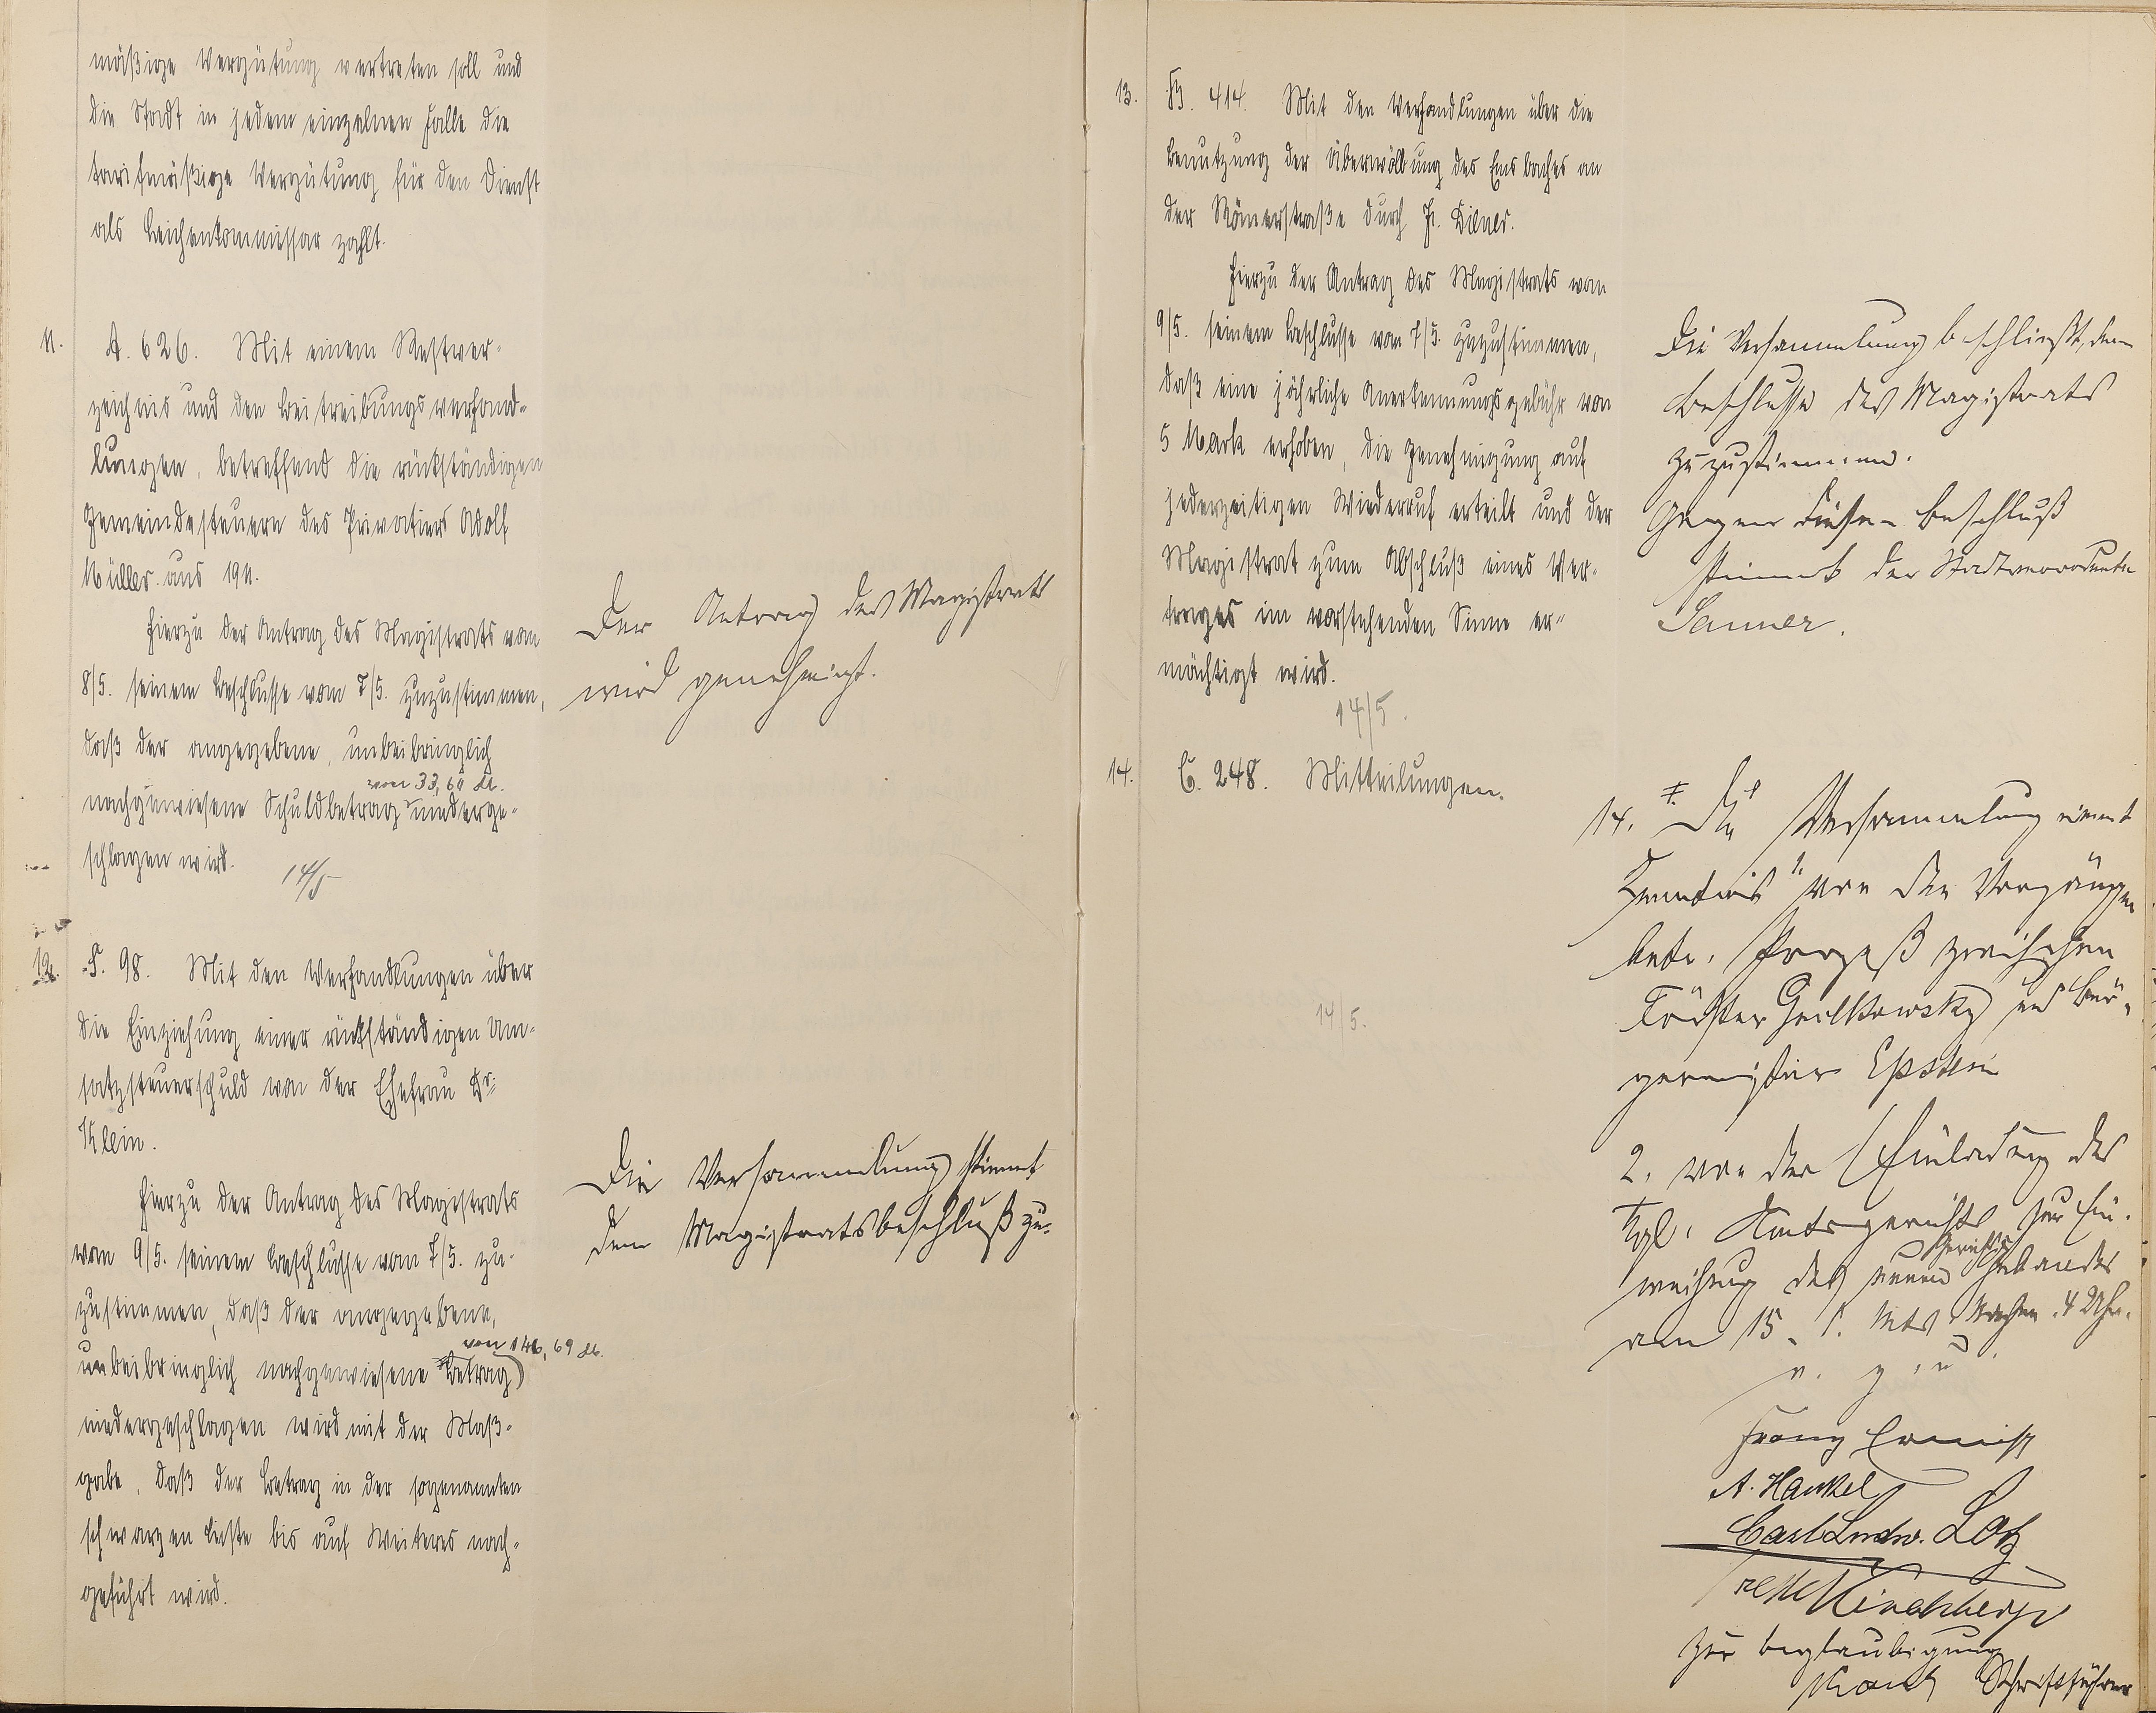 mäßige Vergütung vertreten soll und
die Stadt in jedem einzelnen Falle die
tarifmäßige Vergütung für den Dienst
als Leichenkommissar zahlt.
11. A. 626. Mit einem Restver-
zeichnis und den Beitreibungsverhand-
lungen, betreffend die rückständigen
Gemeindesteuern des Privatiers Adolf
Müller aus 1911.
Hierzu der Antrag des Magistrats vom
8/5. seinem Beschlusse vom 7/5. zuzustimmen,
daß der angegebene, unbeibringlich
von 33,60 M.
nachgewiesene Schuldbetrag niederge-
schlagen wird.
14/5
Der Antrag des Magistrats
wird genehmigt.
12. S. 98. Mit den Verhandlungen über
die Einziehung einer rückständigen Um-
satzsteuerschuld von der Ehefrau Dr.
Klein.
Hierzu der Antrag des Magistrats
vom 9/5. seinem Beschlusse vom 7/5. zu-
zustimmen, daß der angegebene,
von 146,69 M.
unbeibringlich nachgewiesene Betrag
niedergeschlagen wird mit der Maß-
gabe, daß der Betrag in der sogenannten
schwarzen Liste bis auf Weiteres nach-
geführt wird.
Die Versammlung stimmt
dem Magistratsbeschluß zu.
13. B. 414. Mit den Verhandlungen über die
Benutzung der Überwölbung des Emsbaches an
der Römerstraße durch Fr.
Hierzu der Antrag des Magistrats von
9/5. seinem Beschlusse vom 7/5. zuzustimmen,
daß eine jährliche Anerkennungsgebühr von
5 Mark erhoben, die Genehmigung auf
jederzeitigen Wiederruf erteilt und der
Magistrat zum Abschluß eines Ver-
trages im vorstehenden Sinne er-
mächtigt wird.
14/5.
Die Versammlung beschließt, dem
Beschlusse des Magistrats
zuzustimmen.
Gegen diesen Beschluß
stimmt der Stadtverordnete
Sanner.
14. C. 248. Mitteilungen.
14/5.
14. I. Die Versammlung nimmt
Kenntnis 1. von den Vorgängen
betr. Prozeß zwischen
Förster Geilkowsky und Bür-
germeister Epstein
2. von der Einladung des
Kgl. Amtsgerichts zur Ein-
weihung des neuen Gerichtsgebäudes
am 15. l. Mts Nachm. 4 Uhr.
v. g. u.
Franz
A. Hankel
Carl Ludw. Lotz
Zur Beglaubigung
Schriftführer